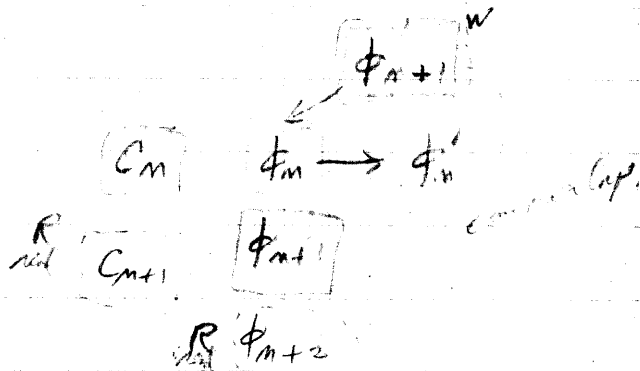 ϕ_{n+1} W
C_n ϕ_n → ϕ'_n
R C_{n+1} ϕ_{n+1}
R ϕ_{n+2}